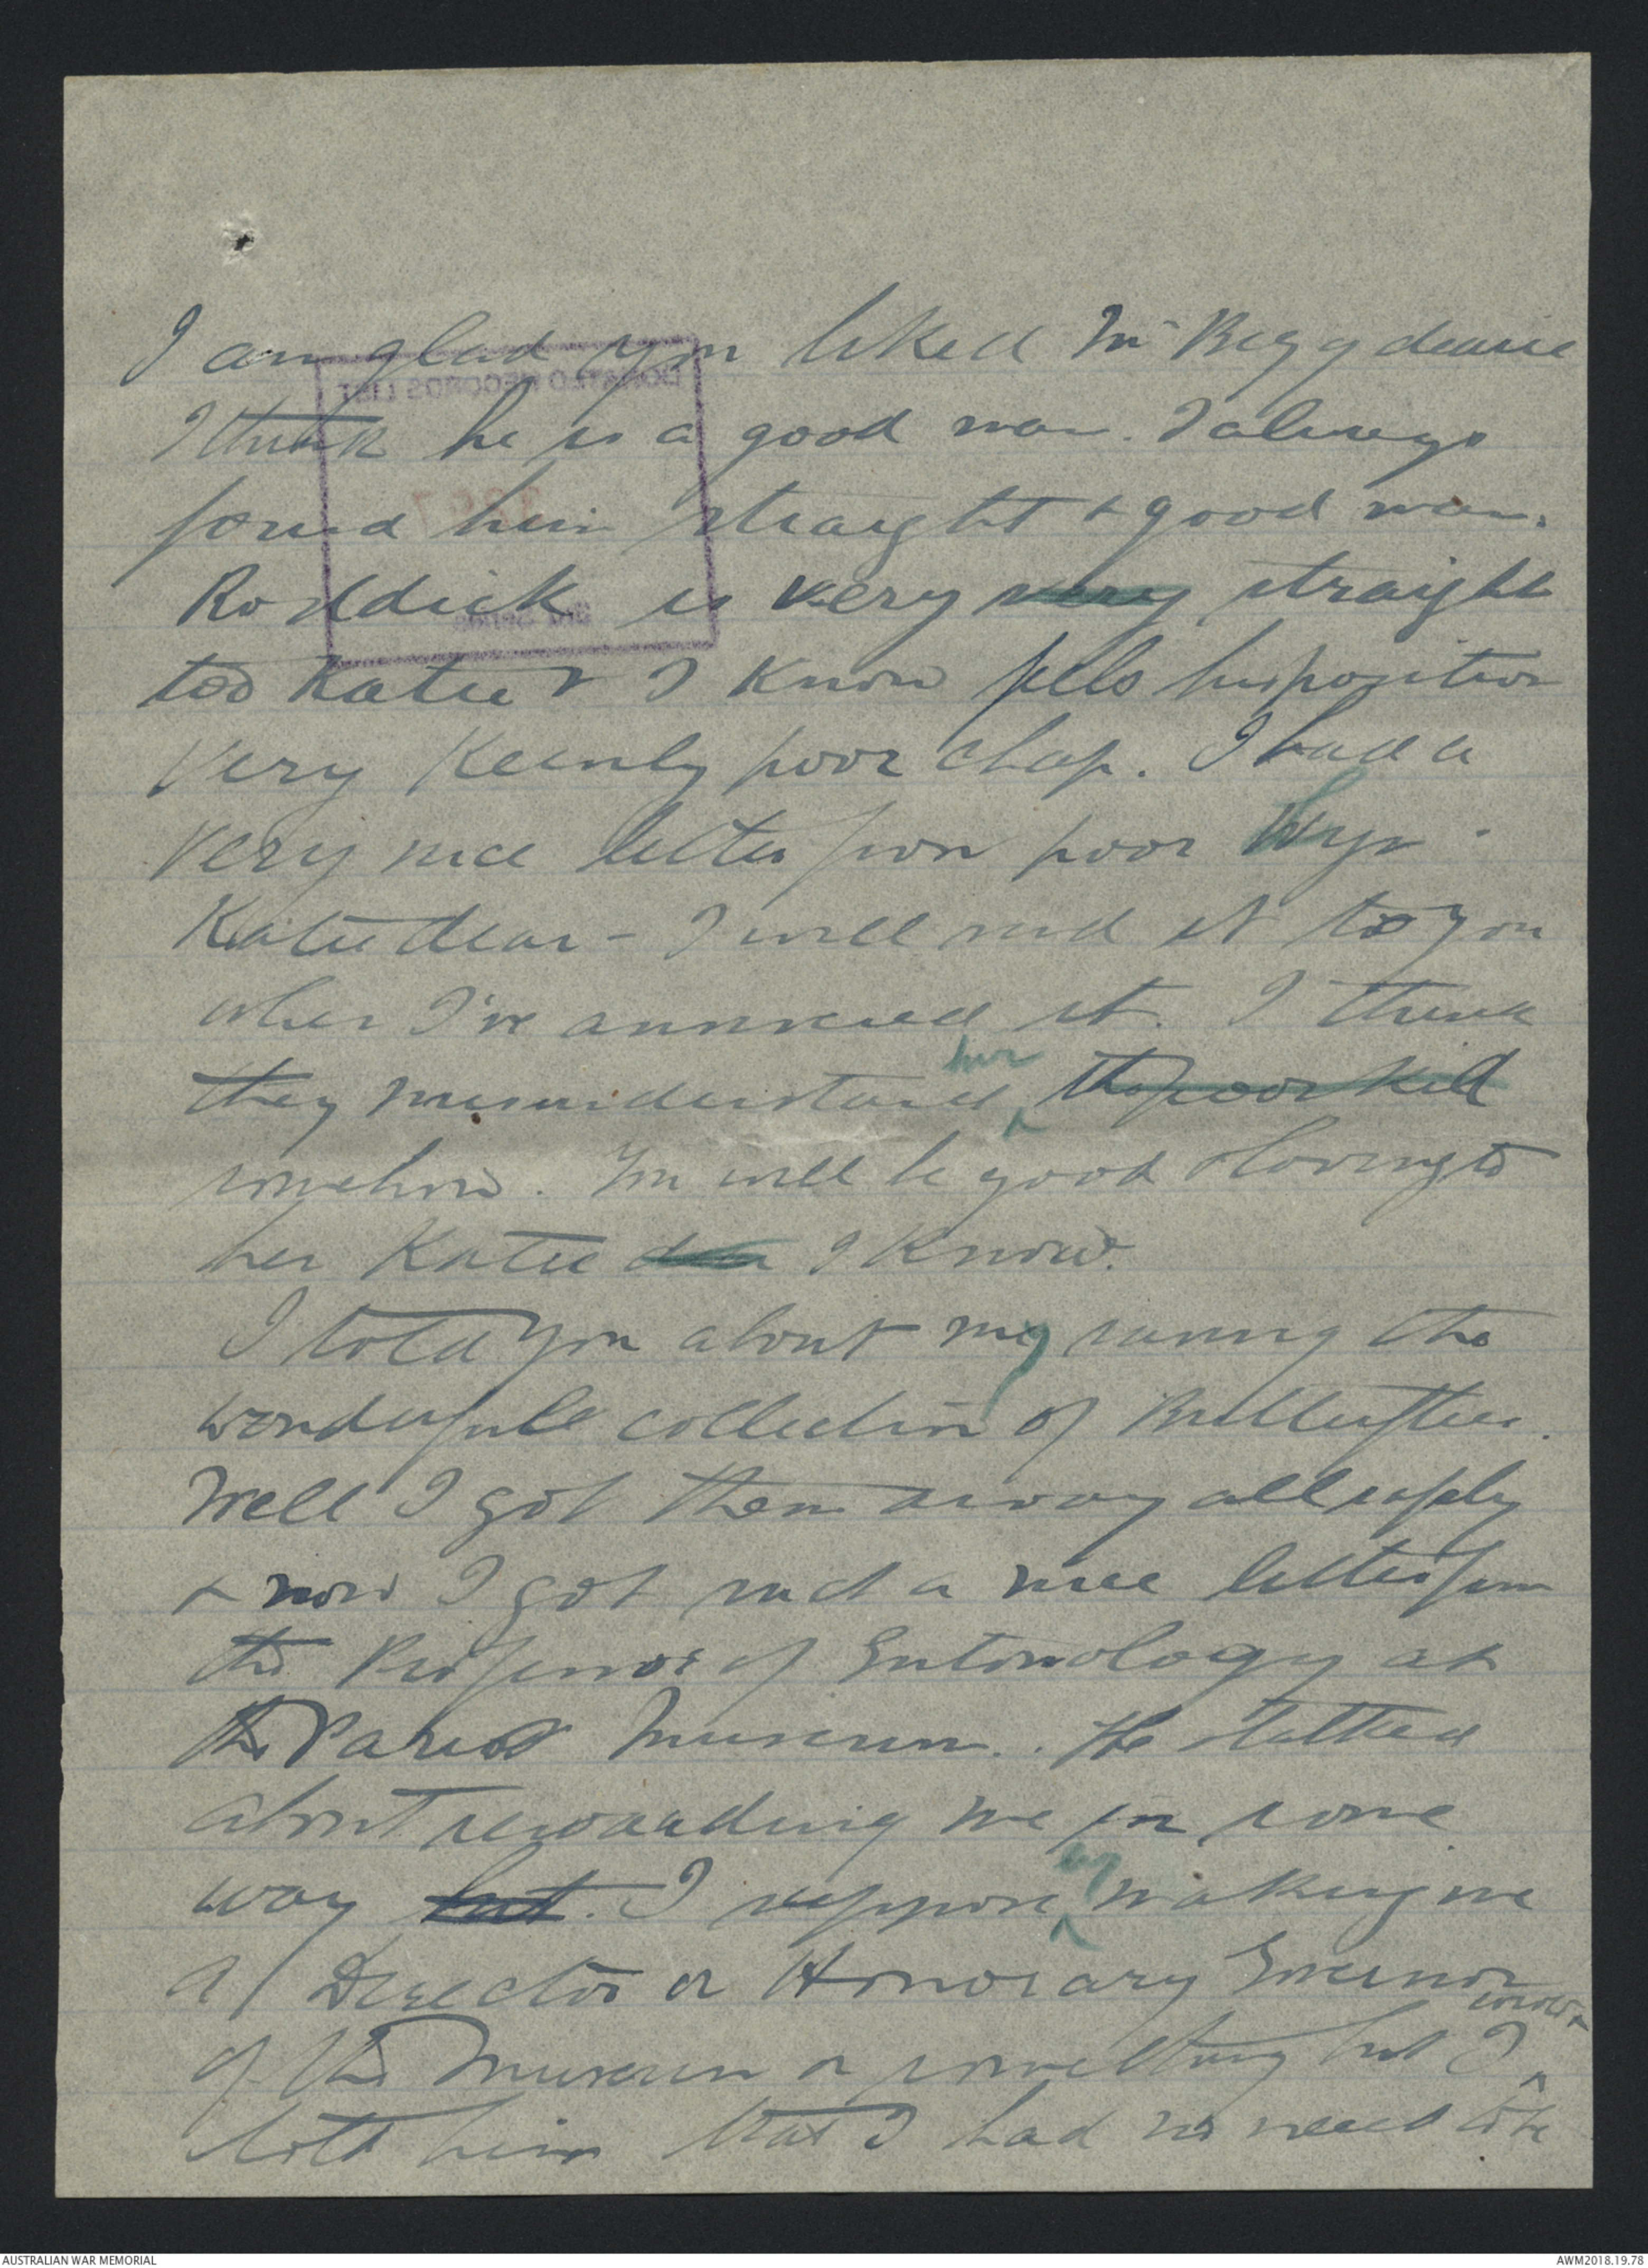 I am glad you liked Mr Begg dearie
I think he is a good man. I always
found him straight & good man.
Roddick is very very straight
too Katie & I know feels his position
very keenly poor chap. I had a
very nice letter from poor
Katie dear - I will send it to you
when I've answered it. I think
they misunderstand her the poor kid
somehow. You will be good & loving to
her Katie dear I know.
I told you about my saving the
wonderful collection of Butterflies.
Well I got them away all safely
& now I got such a nice letter from
the Professor of Entomology at
the Paris Museum. He talked
about rewarding me in some
way but. I suppose by making me
a Director or Honorary Governor
of the Museum or something but I wrote &
told him that I had no need to be
DONATED RECORDS LIST
AUSTRALIAN WAR MEMORIAL
AWM2018.19.78